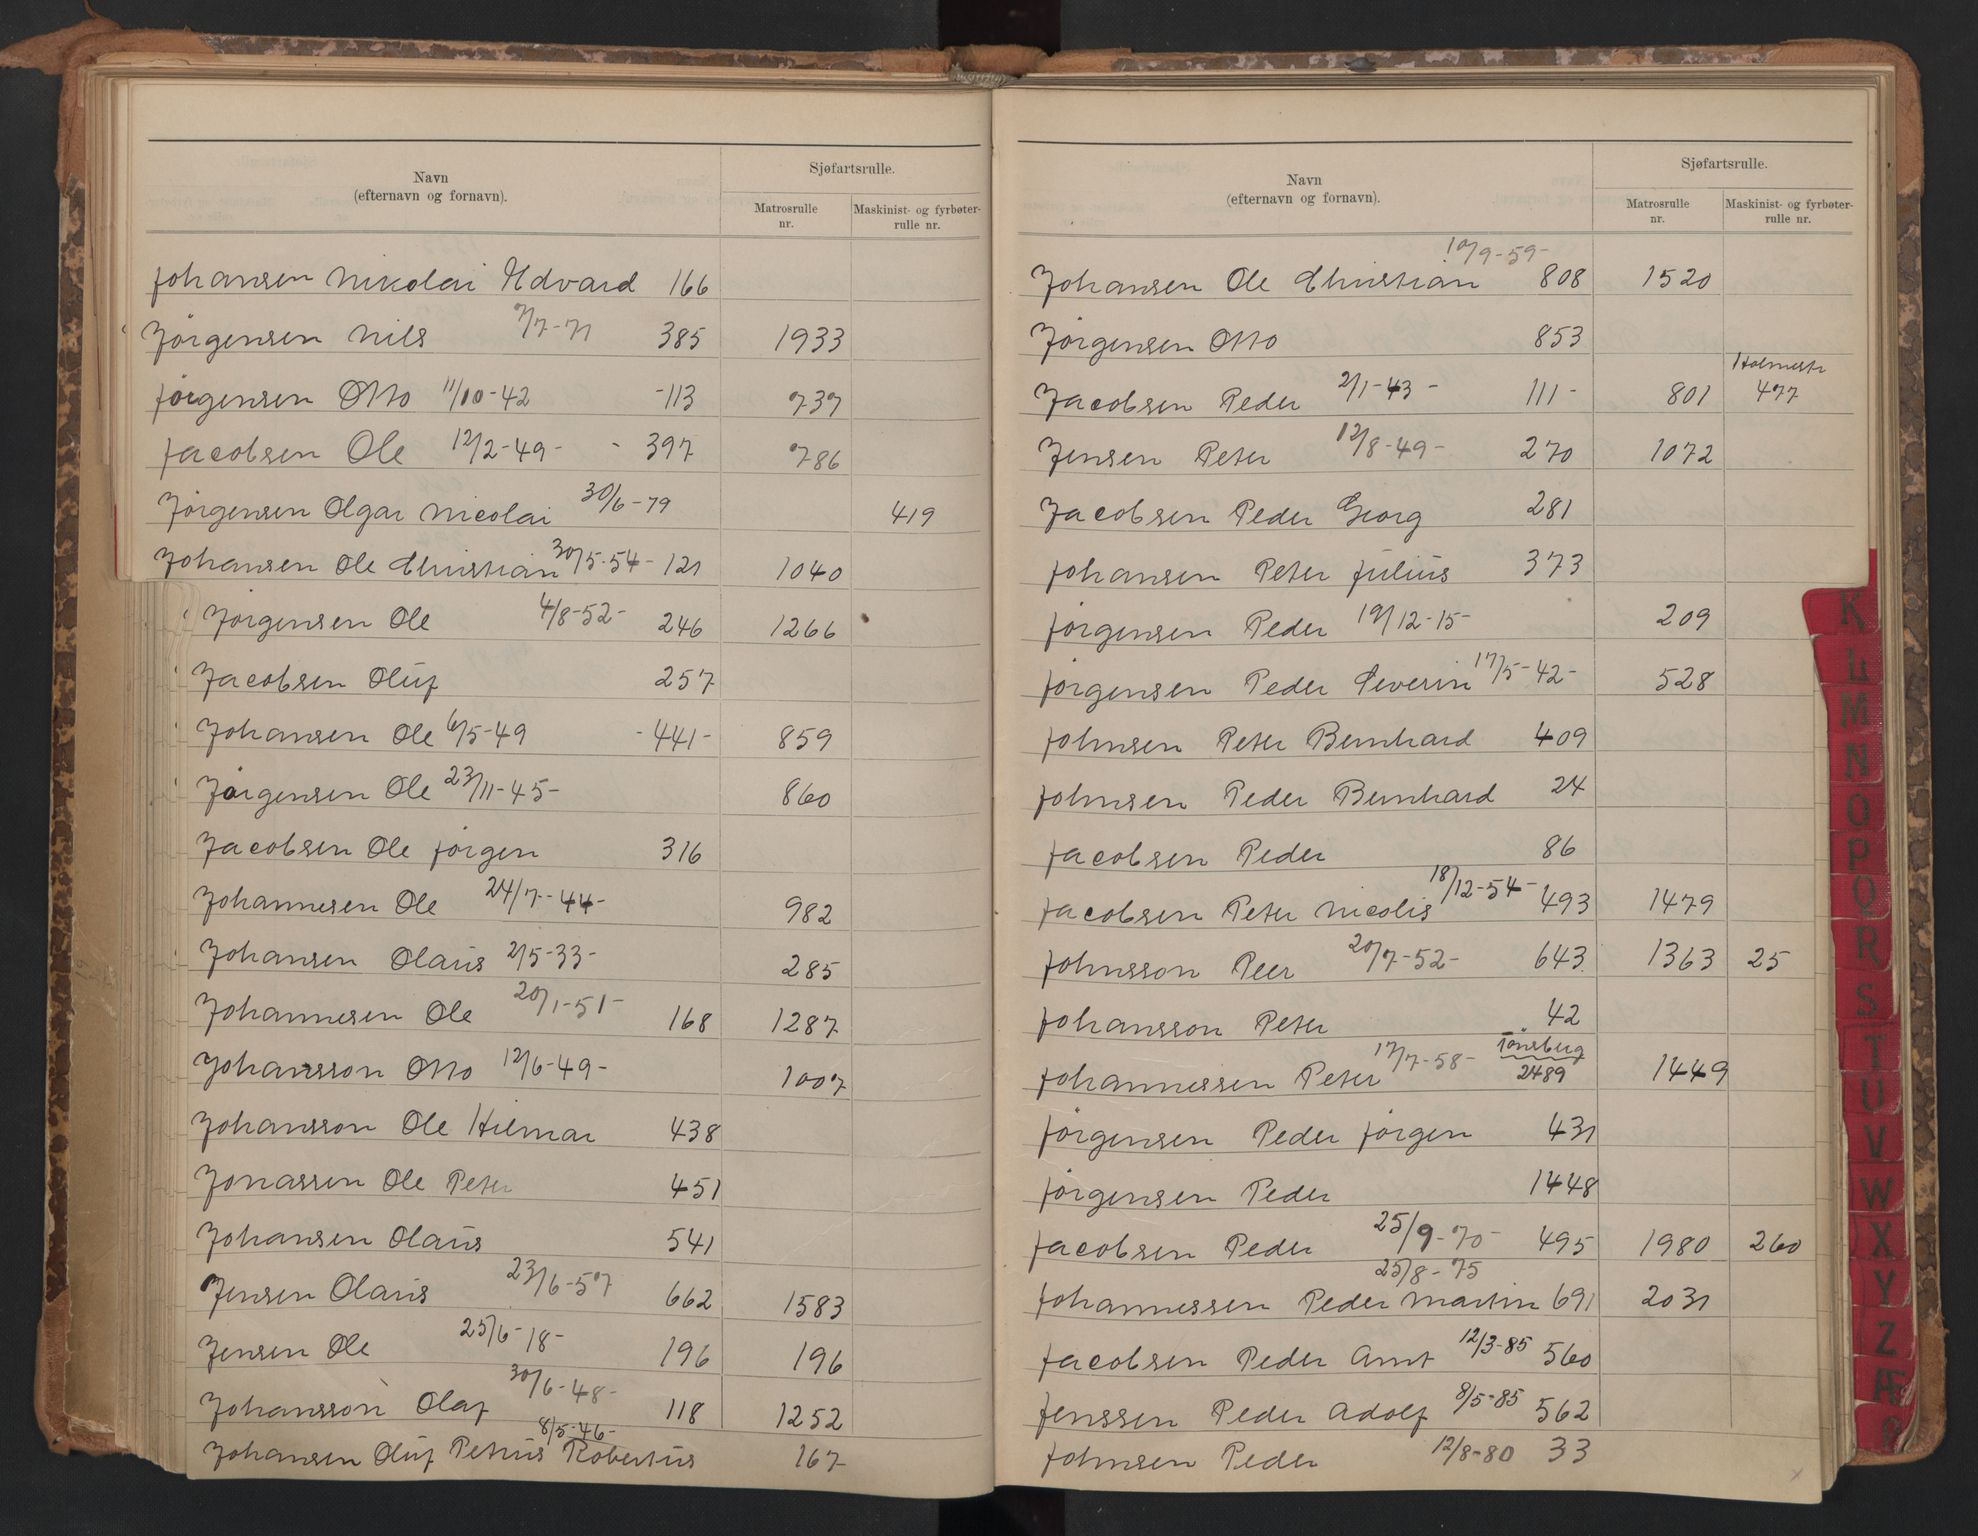 Navn
(efternavn og fornavn).
Sjøfartsrulle.
Matrosrulle
nr.
Maskinist- og fyrbøter-
rulle nr.
Johansen Nikolai Edvard 166
Jörgensen Nils 7/7-71 385 1933
Jörgensen Otto 11/10-42 -113 737
Jacobsen Ole 12/2-49- - 397 786
Jörgensen Olgar Nicolai 30/6-79 419
Johansen Ole Christian 30/5-54- 121 1040
Jörgensen Ole 4/8-52- 246 1266
Jacobsen Oluf 257
Johansen Ole 6/5-49 -441- 859
Jörgensen Ole 23/11-45- 860
Jacobsen Ole Jörgen 316
Johannesen Ole 24/7-44- 982
Johansen Olaus 2/5-33- 285
Johannesen Ole 20/1-51- 168 1287
Johansson Otto 12/6-49- 1007
Johansson Ole Hilmar 438
Jonassen Ole Peter 451
Johansen Olaus 541
Jensen Olaus 23/6-57 662 1583
Jensen Ole 25/6-18- 196 196
Johansson Olaf 30/6-48- 118 1252
Johansen Oluf Petrus Robertus 8/5-46- 167
Navn
(efternavn og fornavn).
Sjøfartsrulle.
Matrosrulle
nr.
Maskinist- og fyrbøter-
rulle nr.
Johansen Ole Christian 10/9-59- 808 1520
Jörgensen Otto 853
Jacobsen Peder 2/1-43- 111- 801 Holmestr 477
Jensen Peter 12/8-49- 270 1072
Jacobsen Peder Georg 281
Johansen Peter Julius 373
Jörgensen Peder 19/12-15- 209
Jörgensen Peder Severin 17/5-42- 528
Johnsen Peter Bernhard 409
Johnsen Peder Bernhard 24
Jacobsen Peder 86
Jacobsen Peter Nicolis 18/12-54- 493 1479
Johnsson Peer 20/7-52- 643 1363 25
Johansson Peter 42
Johannessen Peter 17/7-58- Tönsberg 2489 1449
Jörgensen Peder Jörgen 431
Jörgensen Peder 1448
Jacobsen Peder 25/9-70- 495 1980 260
Johannessen Peder Martin 25/8-75 691 2031
Jacobsen Peder Arnt 12/3-85 560
Jenssen Peder Adolf 8/5-85 562
Johnsen Peder 12/8-80 33
K
L
M
N
O
P
Q
R
S
T
U
V
W
X
Y
Z
Æ